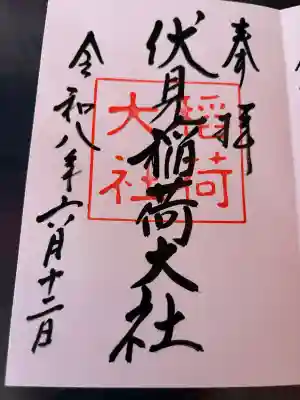 奉拝
伏見稲荷大社
稲荷
大社
令和八年六月十二日